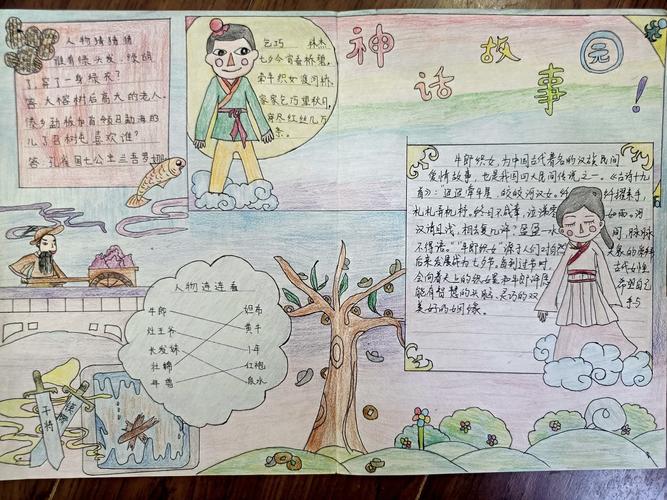 神话故事园!
人物猜猜猜
谁有绿头发,绿胡
了,穿了一身绿衣?
答:大榕树后高大的老人。
傣乡勐板加有领召勐海的
儿了召树屯喜欢谁?
答:孔雀国七公主兰吾罗娜
乞巧 林杰
七夕今宵看碧霄,
牵牛织女渡河桥。
家家乞巧望秋月,
穿尽红丝几万
条。
牛郎织女,为中国古代著名的汉族民间
爱情故事,也是我国四大民间传说之一。《古诗十九
首》:"迢迢牵牛星,皎皎河汉女。纤纤擢素手,
札札弄机杼。终日不成章,泣涕零如雨。河
汉清且浅,相去复几许?盈盈一水间,脉脉
不得语。"牛郎织女"源于人们对自然天象的崇拜
后来发展成为七夕节。每到过节时,古代女性
会向着天上的织女星和牛郎星希望自己
能有智慧的头脑、灵巧的双手与
美好的姻缘。
人物连连看
牛郎 织布
灶王爷 黄牛
长发妹 1年
壮锦 红袍
年兽 泉水
干将
莫邪